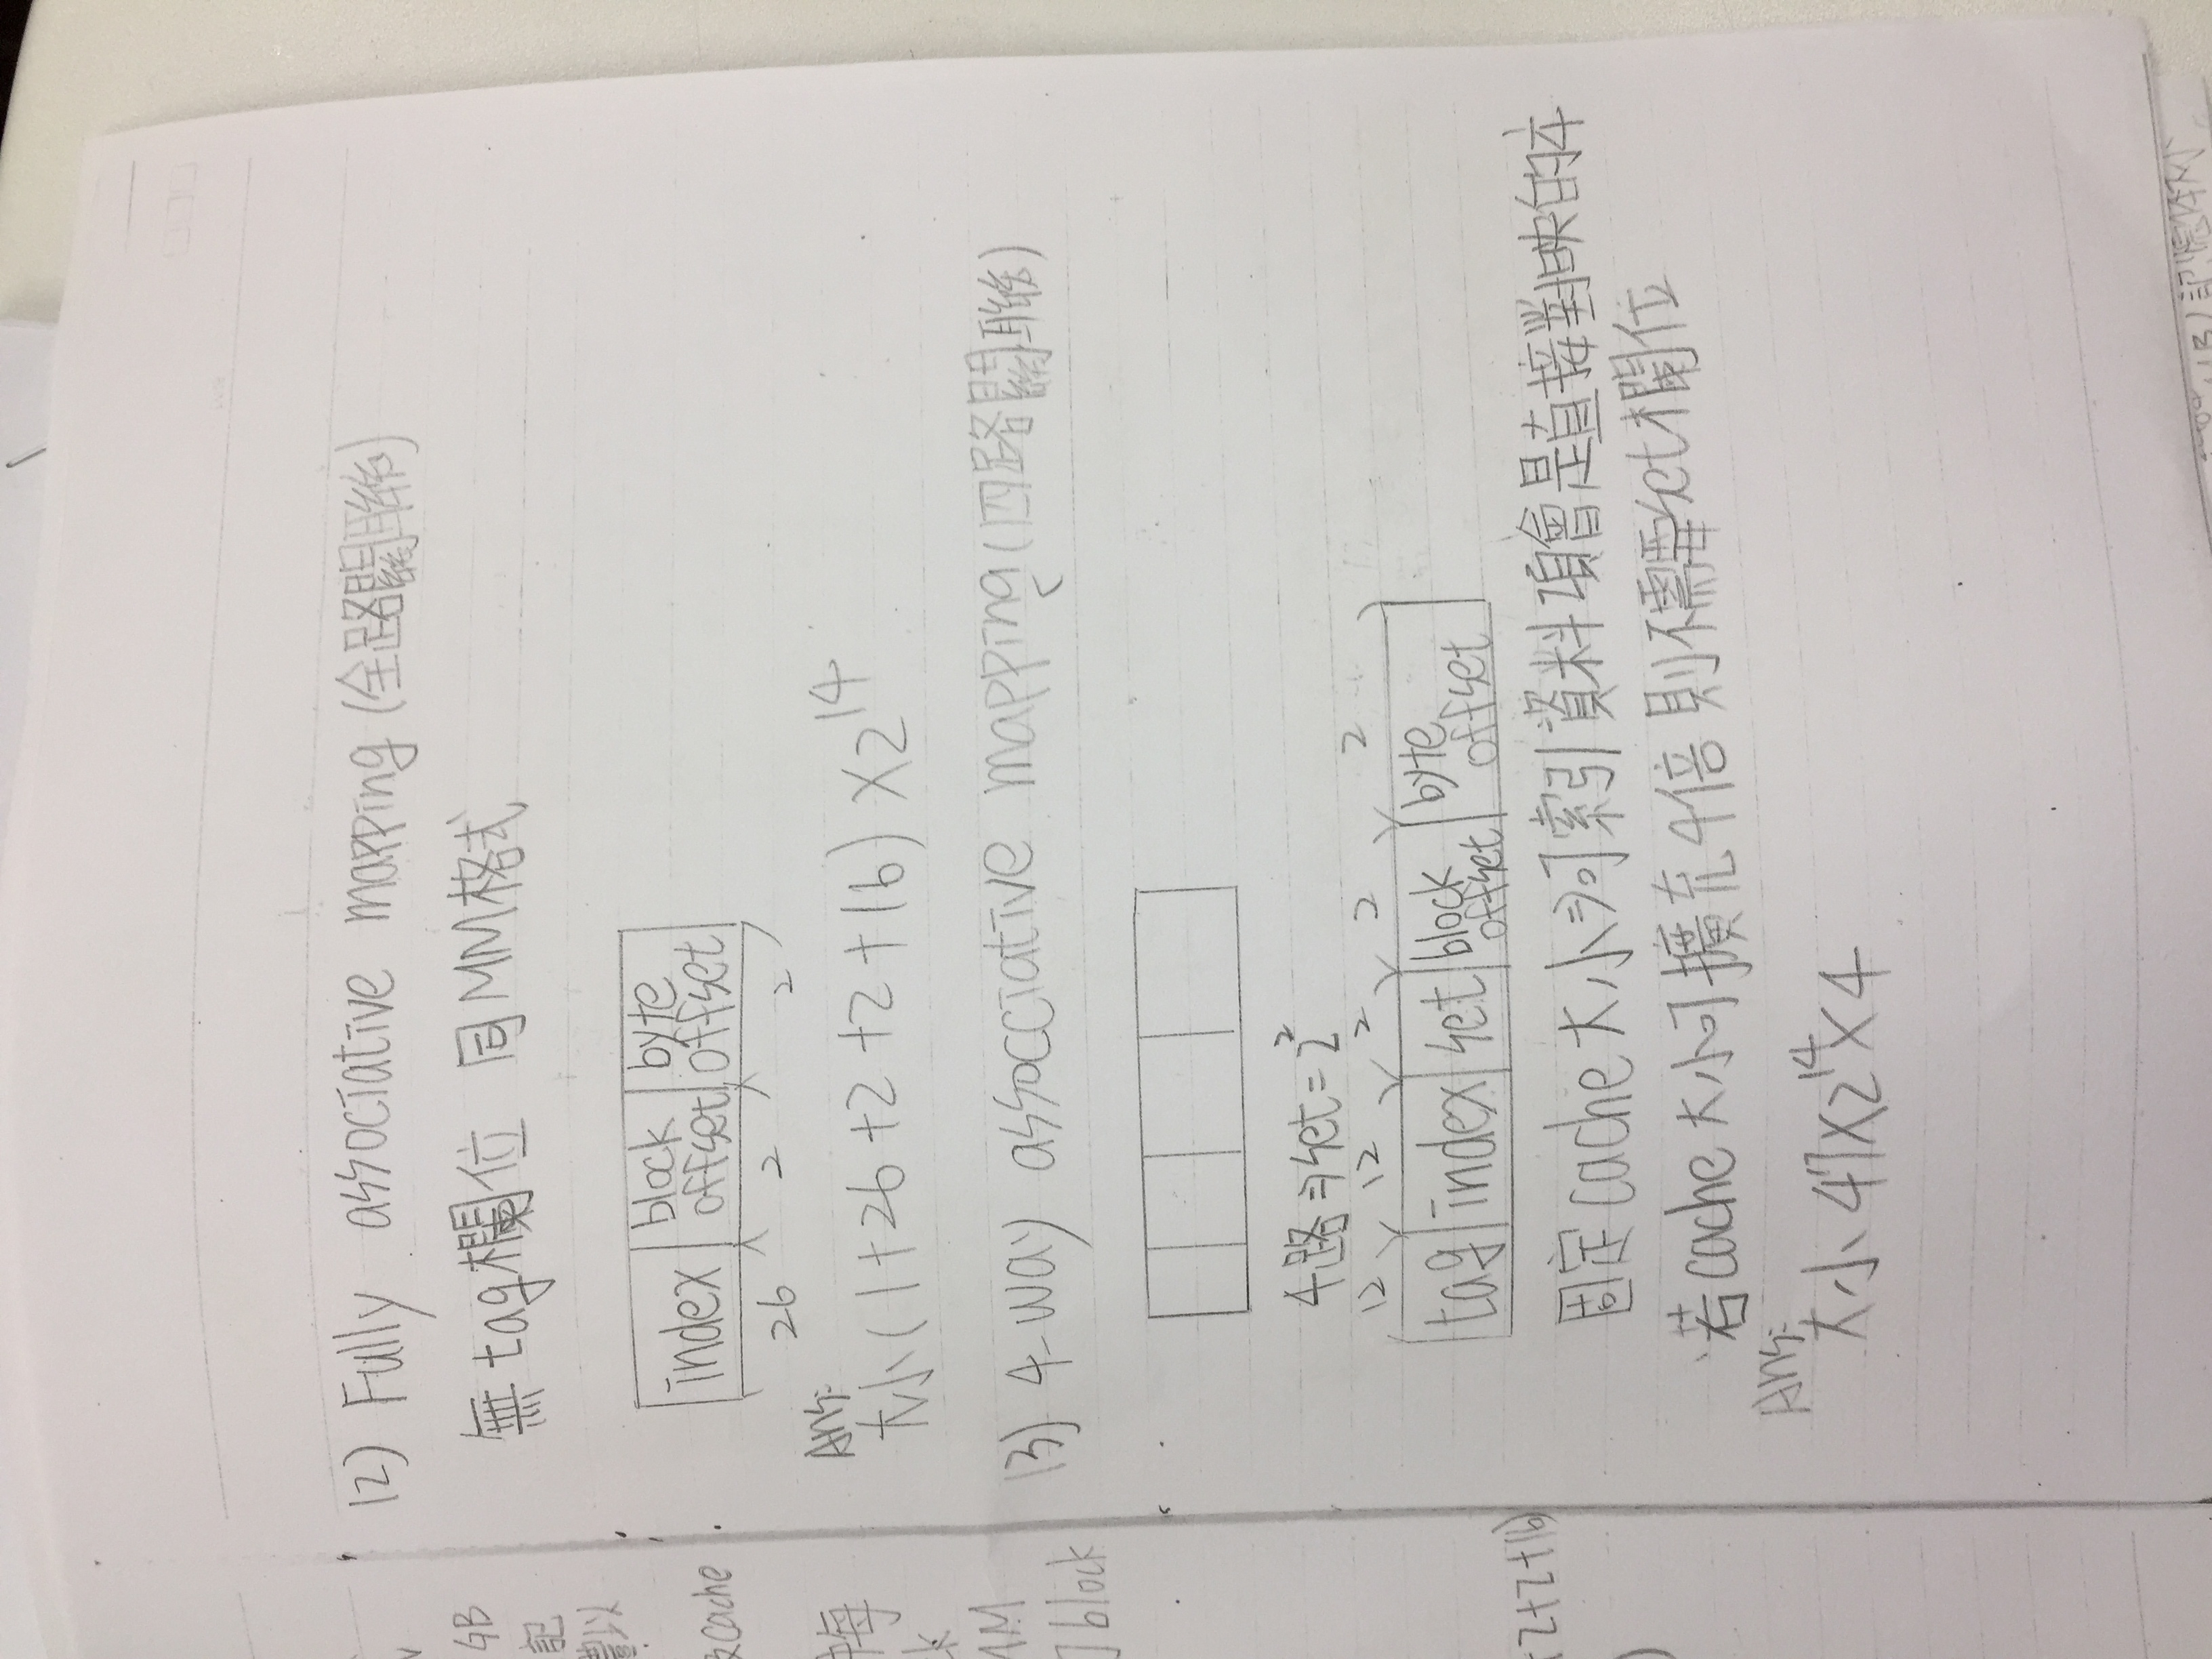 GB
記
以
cache
海
MM
block
+2+2+16)
(2) Fully associative mapping (全路關聯)
無tag欄位 同MM格式
index block offset byte offset
26 2 2
Ans:
大小(1+26+2+2+16)×2^14
(3) 4-way assocciative mapping (四路關聯)
4路⇒set=2^2
12 12 2 2 2
tag index set block offset byte offset
固定cache大小⇒可索引資料項會是直接對映的
若cache大小可擴充4倍則不需要set欄位
Ans:
大小 47×2^14×4
記憶体大小